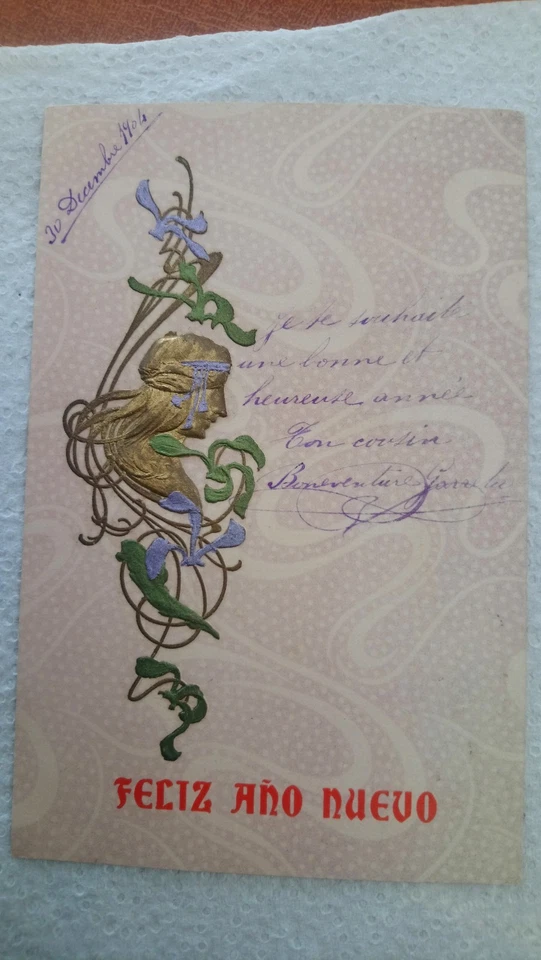 30 Decembre 1904
je te souhaite
une bonne et
heureuse année
Ton cousin
Boneventure
FELIZ AÑO NUEVO